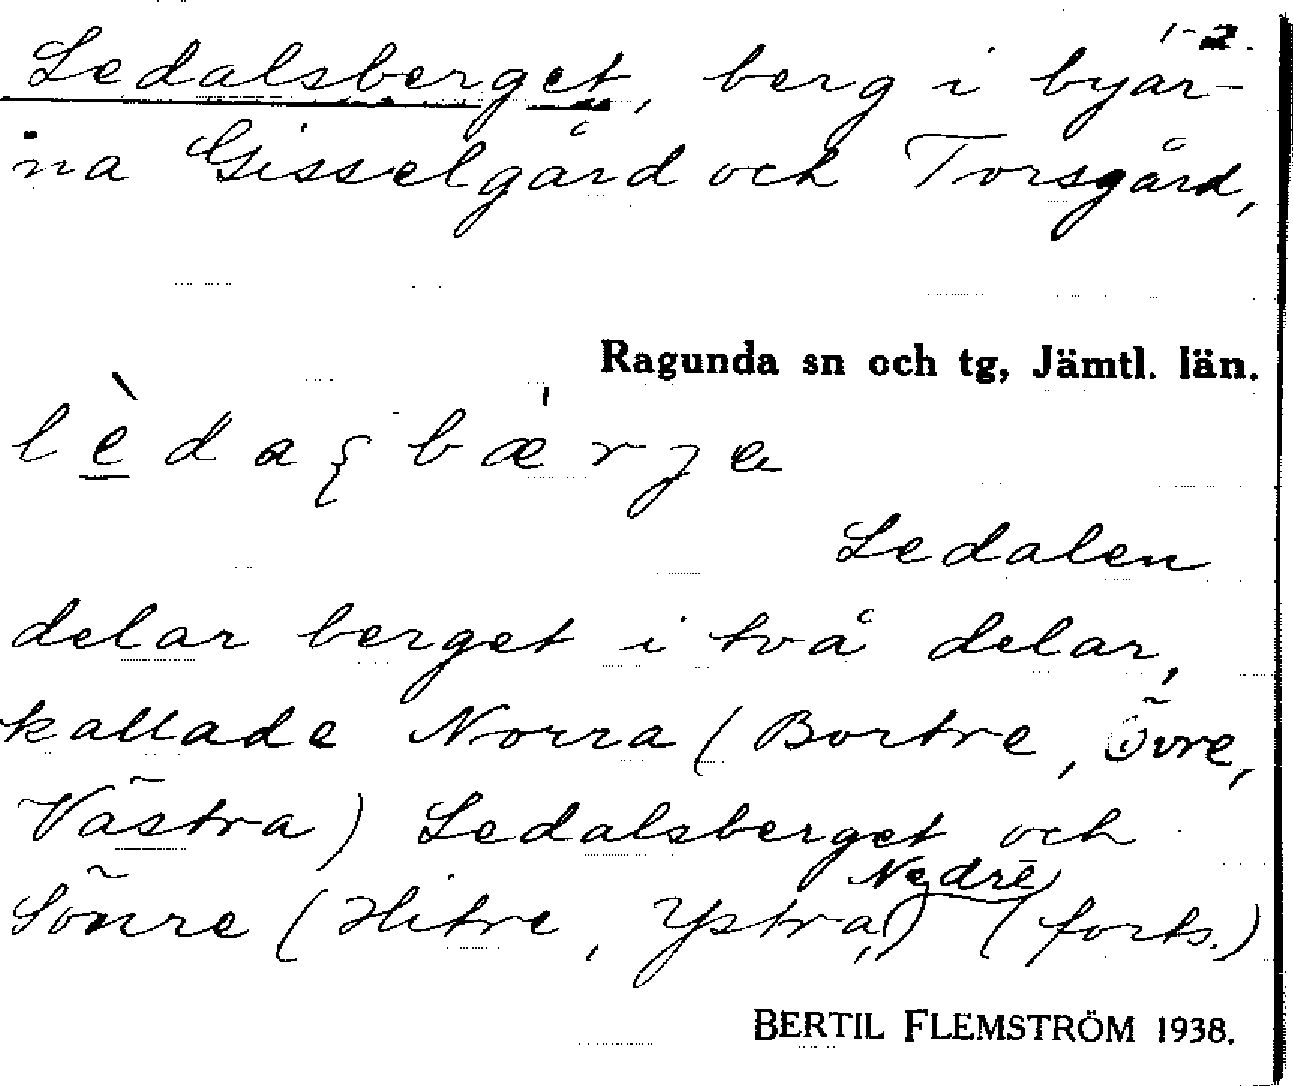 1-2.
Ledalsberget, berg i byar-
na Gisselgård och Torsgård,
Ragunda sn och tg, Jämtl. län.
Ledalen
delar berget i två delar,
kallade Norra (Bortre, Övre,
Västra) Ledalsberget och
Sönre (Hitre, Ystra, Nedre) (forts.)
BERTIL FLEMSTRÖM 1938.